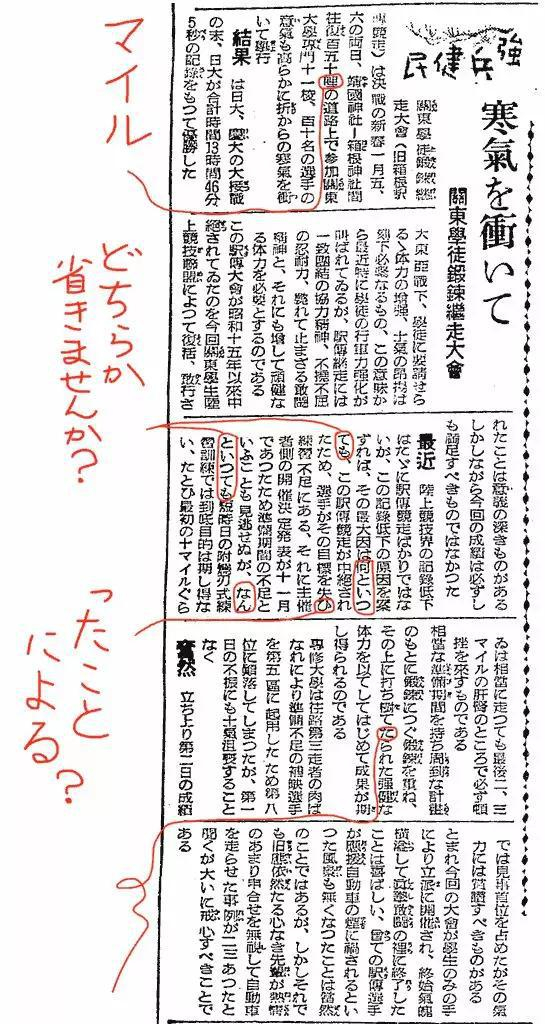 強兵健民
寒氣を衝いて
關東學徒鍛錬繼走大會
關東學徒鍛錬繼
走大會(旧箱根駅
傳競走)は決戰の新春一月五、
六の両日、靖國神社―箱根神社間
往復百五十哩の道路上で參加關東
大學專門十一校、百十名の選手の
意氣も高らかに折からの寒氣を衝
いて擧行
結果 は日大、慶大の大接戰
の末、日大が合計時間13時間46分
5秒の記録をもつて優勝した
大東亜戰下、學徒に要請せら
るゝ体力の増強、士氣の昂揚は
刻下必要なるもの、この意味か
ら最近特に學徒の行軍力強化が
叫ばれてゐるが、駅傳繼走には
一致團結の協力精神、不撓不屈
の忍耐力、斃れて止まざる敢鬪
精神と、それにも増して頑健な
る体力を必要とするのである
この駅傳大會が昭和十五年以來中
絶されてゐたのを今回關東學生陸
上競技聯盟によつて復活、敢行さ
れたことは意義の深きものがある
しかしながら今回の成績は必ずし
も滿足すべきものではなかつた
最近 陸上競技界の記録低下
はたゞに駅傳競走ばかりではな
いが、この記録低下の原因を案
ずれば、その最大因は何といつ
ても、この駅傳競走が中絶され
たため、選手がその目標を失ひ
練習不足にある、それに主催
者側の開催決定發表が十一月
であつたため準備期間の不足と
いふことも見逃せぬが、なん
といつても短時日の附燒刄式練
習訓練では到底目的は期し得な
い、たとひ最初の十マイルぐら
ゐは相當に走つても最後二、三
マイルの肝腎のところで必ず頓
挫を來すものである
相當な準備期間を持ち周到な計畫
のもとに鍛錬につぐ鍛錬を重ね、
その上に打ち樹てられた強健な
体力を以てしてはじめて成果が期
し得られるのである
專修大學は往路第三走者の肉ば
なれにより準備不足の補缺選手
を第五區に起用したため第八
位に顛落してしまつたが、第一
日の不振にも士氣沮喪すること
なく
奮然 立ち上り第二日の成績
では見事首位を占めたがその氣
力には賞讃すべきものがある
とまれ今回の大會が學生のみの手
により立派に開催され、終始氣魄
横溢して眞摯敢鬪の裡に終了した
ことは喜ばしい、曾ての駅傳選手
が應援自動車の煙に禍されるとい
つた風景も無くなつたことは當然
のことではあるが、しかしそれで
も旧態依然たる心なき先輩が熱情
のあまり申合せを無視して自動車
を走らせた事例が二三あつたと
聞くが大いに戒心すべきことで
ある
マイル
どちらか
省きませんか?
ったこと
による?